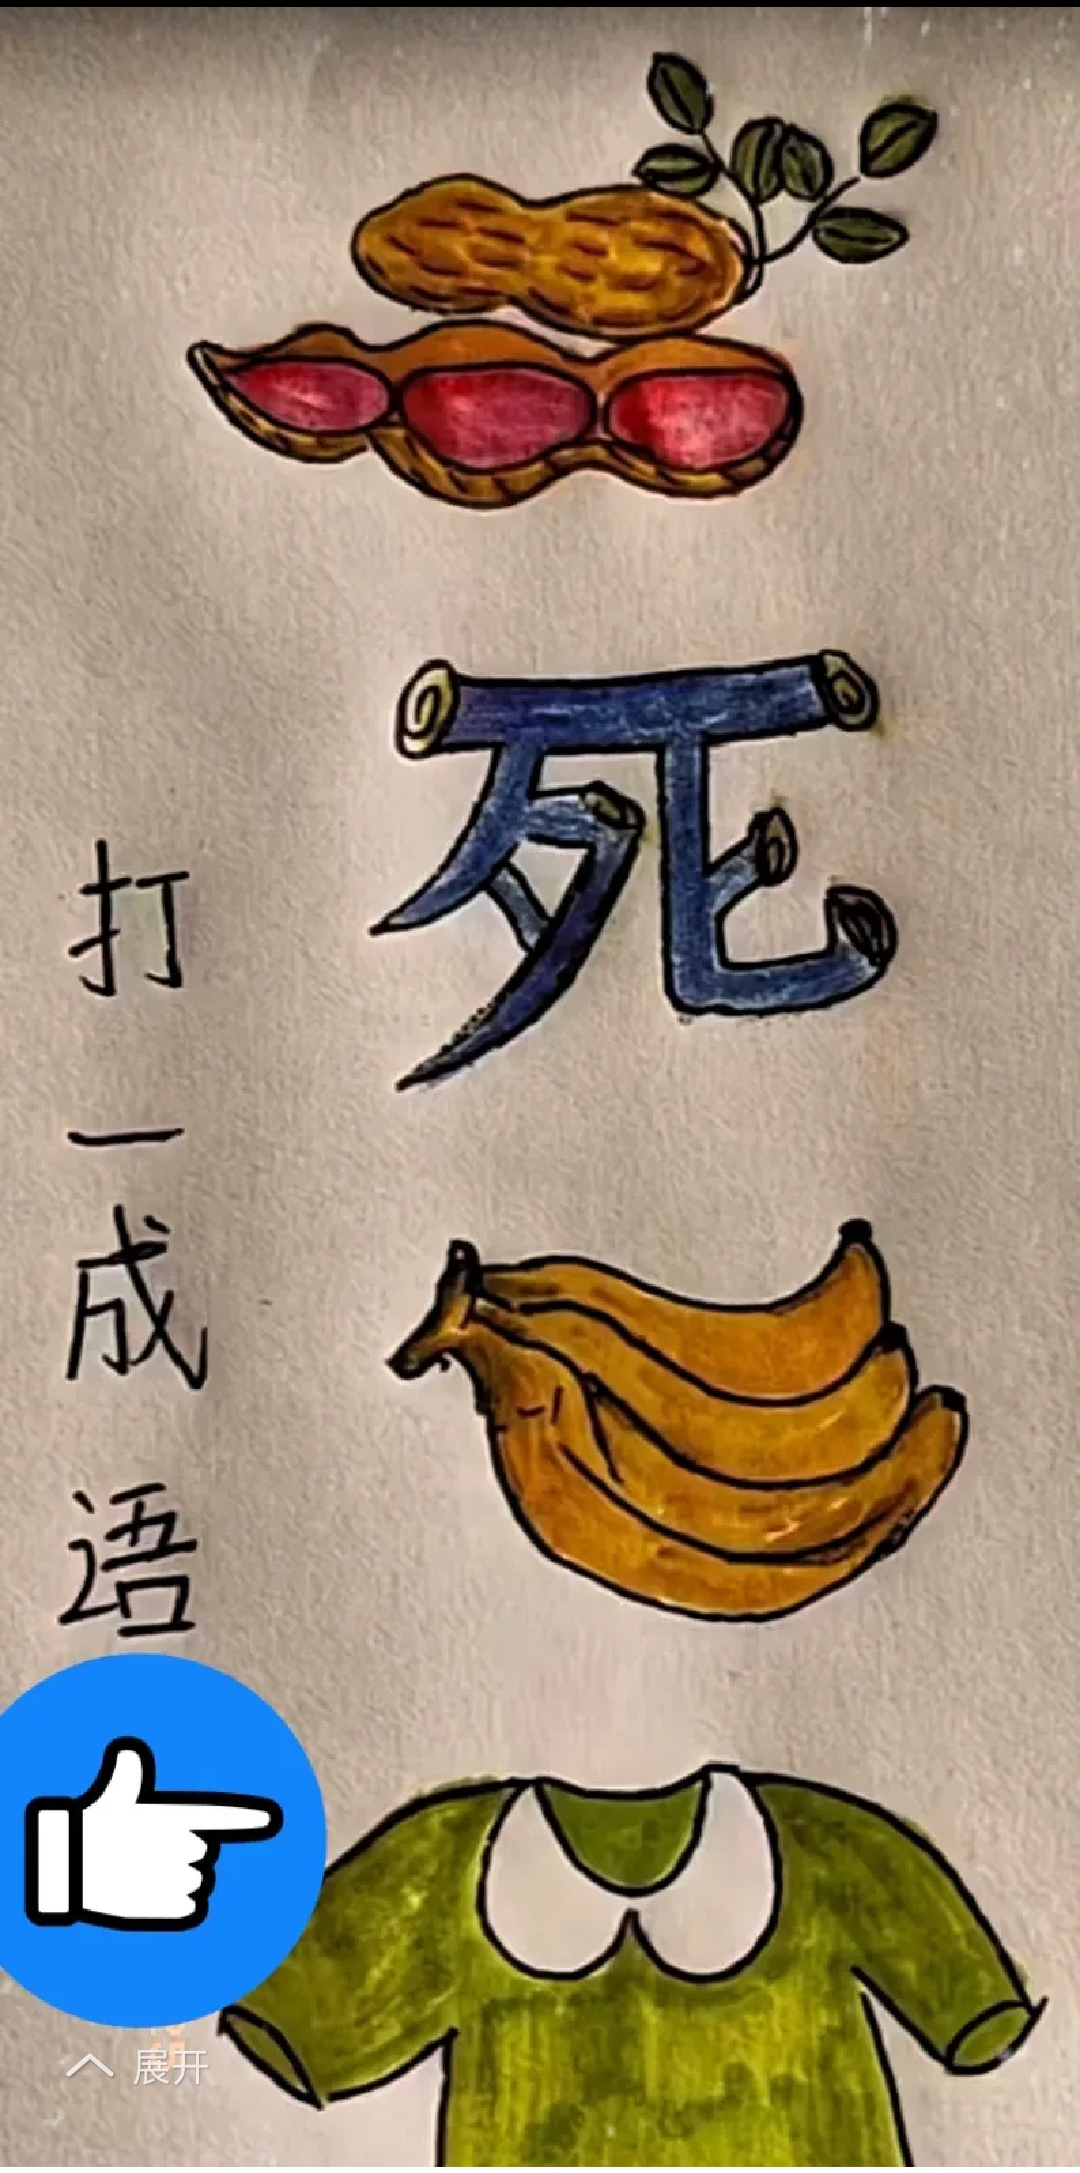 死
打一成语
展开